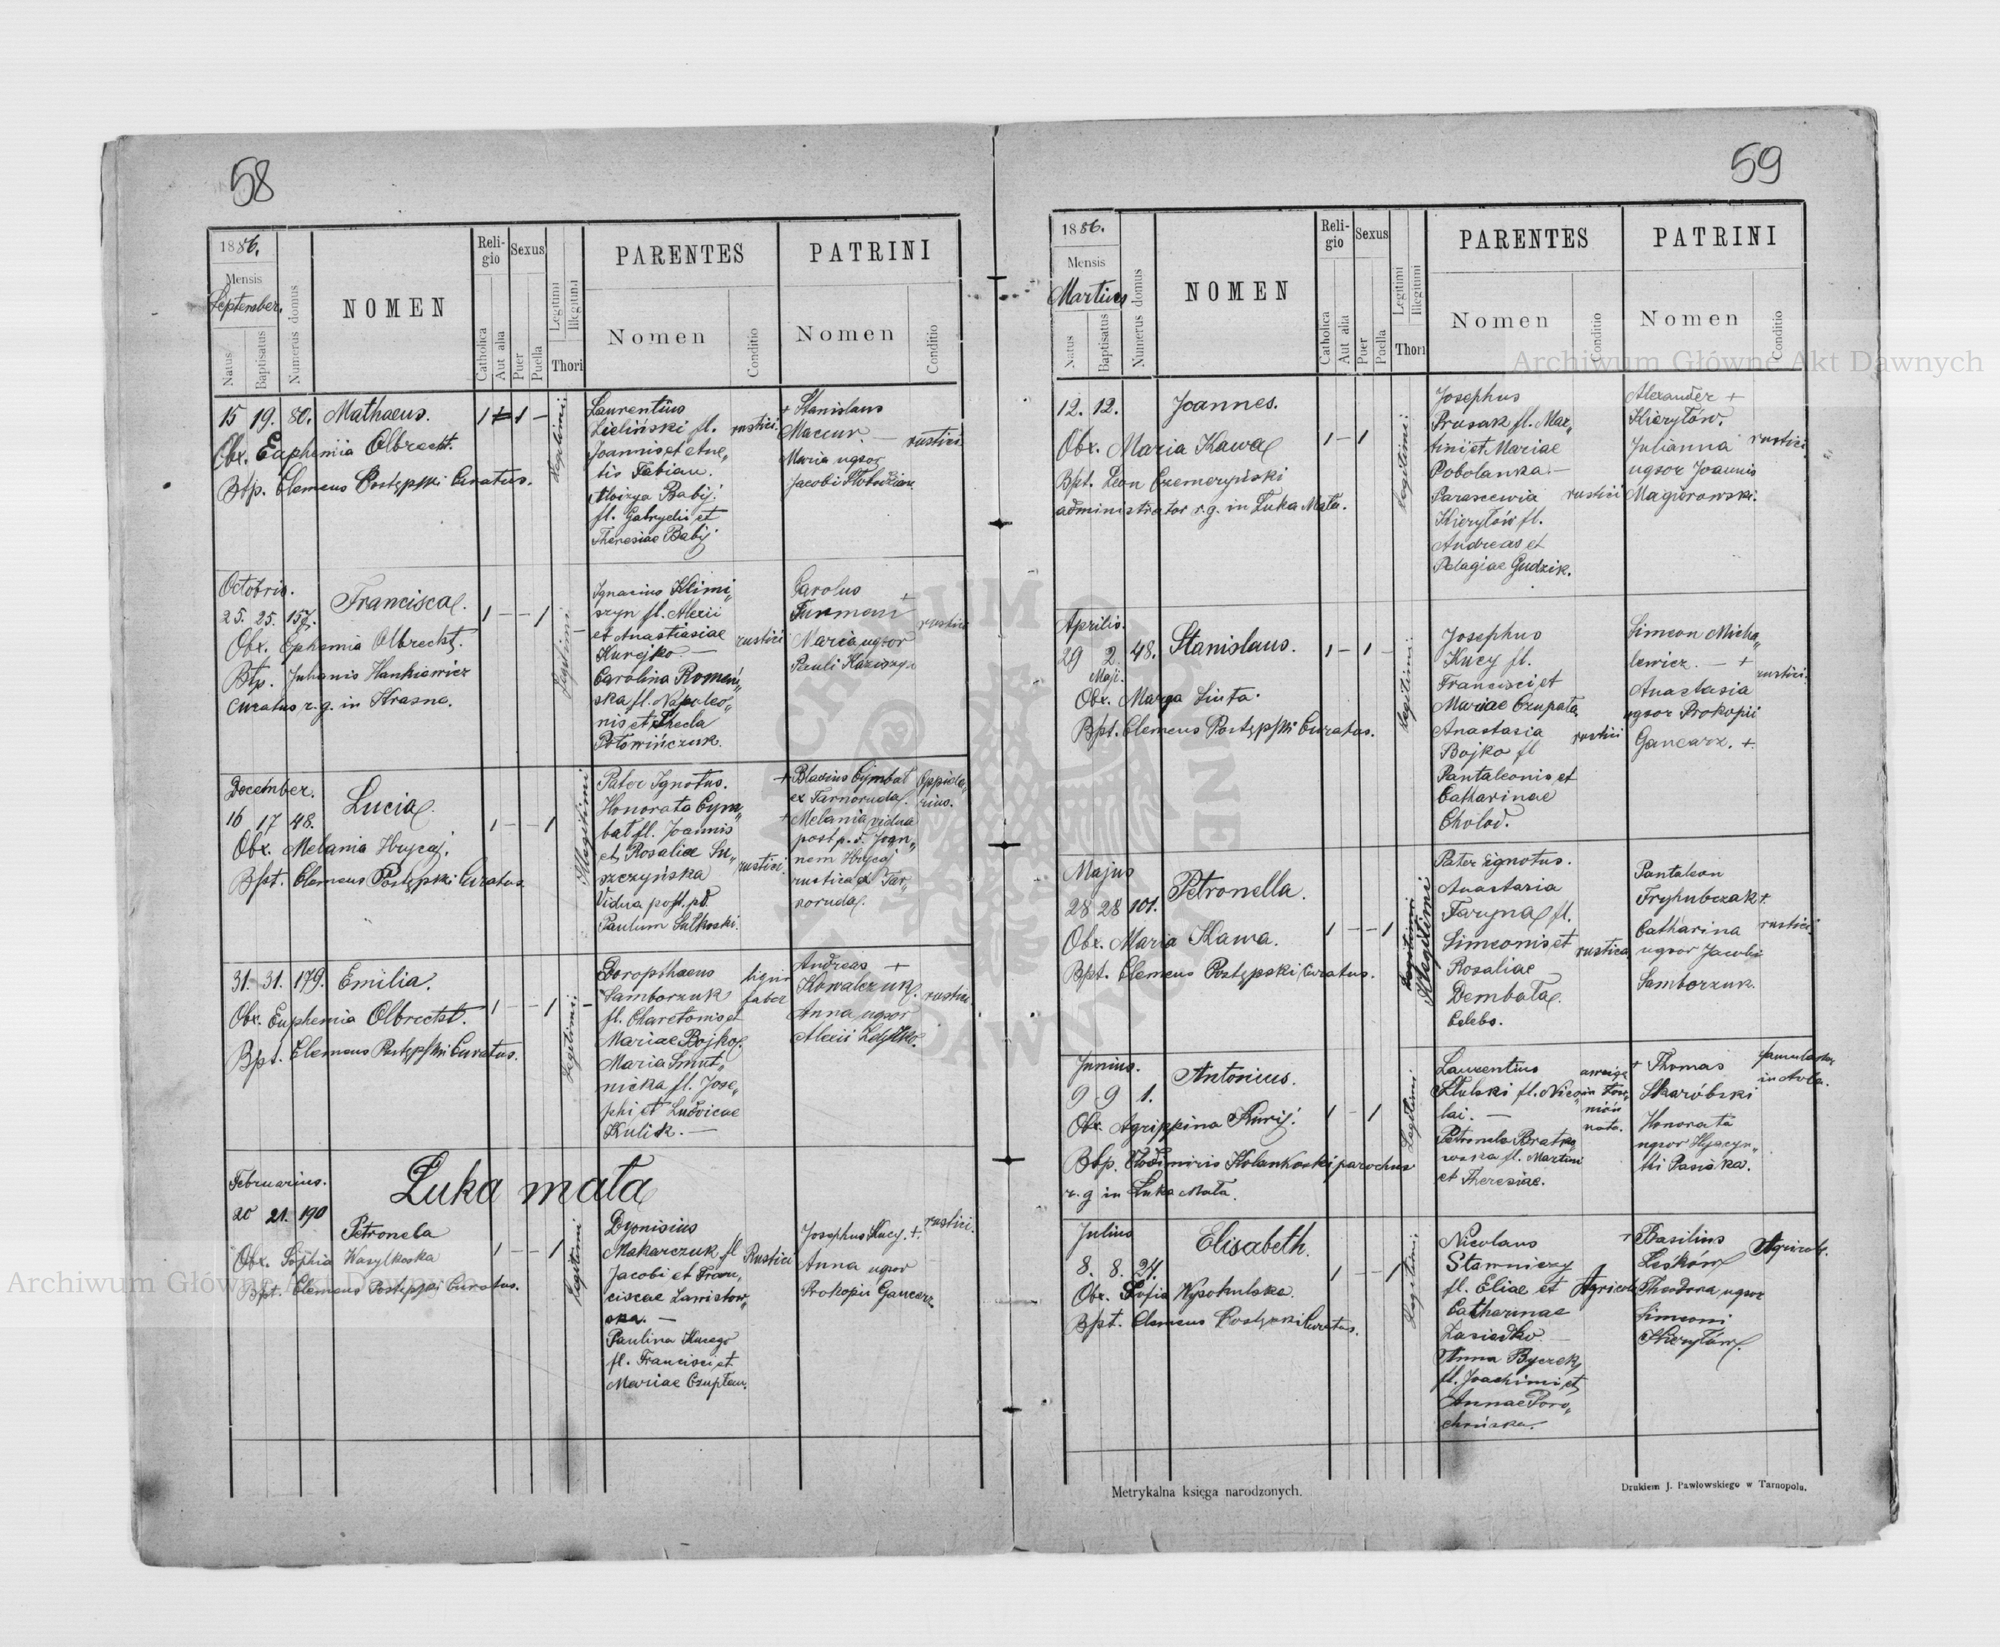 58
1886.
Mensis
September.
Natus
Baptisatus
Numerus domus
NOMEN
Religio
Catholica
Aut alia
Sexus
Puer
Puella
Legitimi
Illegitimi
Thori
PARENTES
Nomen
Conditio
PATRINI
Nomen
Conditio
15 19. 80. Mathaeus. 1 1 –
Obx. Euphemia Olbrecht.
Btp. Clemens Postępski Curatus.
Legitimi
Laurentius
Zieliński fl.
Joannis et
Fabian.
Babij
fl. Gabryelis et
Theresiae Babij
rustici.
+ Stanislaus
Mazur. –
Maria uxor
Jacobi
rustici
Octobris.
25. 25. 157. Francisca. 1 – – 1
Obx. Ephemia Olbrecht.
Btp. Julianis Hankiewicz
Curatus r. g. in Krasne.
Legitimi
Ignatius Klimi„
szyn fl. Alexii
et Anastasiae
Kurejko –
Carolina Romań„
ska fl. Napoleo„
nis et Thecla
Połowińczuk.
rustici
Carolus +
Furman
Maria uxor
Pauli
rustici
December.
16 17 48. Lucia. 1 – – 1
Obx. Melania Hrycaj.
Bpt. Clemens Postępski Curatus.
Illegitimi
Pater Ignotus.
Honorata Cym„
bał fl. Joannis
et Rosaliae Su„
szczyńska
Vidua post pd.
Paulum Sutkoski.
rustici.
+ Blasius Cymbał
ex Tarnoruda.
+ Melania vidua
post p. d. Joan„
nem Hrycaj
rustica ex Tar„
noruda.
Oppida„
rius.
31. 31. 179. Emilia. 1 – – 1 –
Obx. Euphemia Olbrecht.
Bpt. Clemens Postępski Curatus.
Legitimi
Doropthaeus
Samborzuk
fl. Charetonis et
Mariae Bojko
Maria Smut„
nicka fl. Jose„
phi et Ludvicae
Kulik. –
lignis
faber
Andreas +
Kowalczuk.
Anna uxor
Alexii
rustici
Februarius.
Łuka mała
20 21. 190
Petronela 1 – – 1
Obx. Sophia Wasylkoska
Bpt. Clemens Postępski Curatus.
Legitimi
Dyonisius
Makarczuk fl
Jacobi et Fran„
ciscae Zawistow„
ska. –
Paulina Kucego
fl. Francisci et
Mariae Czupłan.
Rustici
Josephus Kucy. +.
Anna uxor
Prokopii Gancarz
rustici.
59
1886.
Mensis
Martius
Natus
Baptisatus
Numerus domus
NOMEN
Religio
Catholica
Aut alia
Sexus
Puer
Puella
Legitimi
Illegitimi
Thori
PARENTES
Nomen
Conditio
PATRINI
Nomen
Conditio
12. 12. Joannes.
Obx. Maria Kawa 1 – 1
Bpt. Leon Czemeryński
administrator r. g. in Łuka Mała.
Legitimi
Josephus
Prusak fl. Mar„
tini et Mariae
Pobolanka. –
Parascewia
Kieryłów fl.
Andreas et
Pelagiae Gudzik.
rustici
Alexander +
Kieryłów.
Julianna
uxor Joannis
Magurowski.
rustici
Aprilis.
29 2 48. Stanislaus. 1 – 1 –
Maji.
Obx. Marya Siuta.
Bpt. Clemens Postępski Curatus.
Legitimi
Josephus
Kucy fl.
Francisci et
Mariae Czupała
Anastasia
Bojko fl
Pantaleonis et
Catharinae
Cholod.
rustici
Simeon Micha„
lewicz. – +
Anastasia
uxor Prokopii
Gancarz. +.
rustici.
Majus
28 28 101. Petronella. 1 – – 1
Obx. Maria Kawa.
Bpt. Clemens Postępski Curatus.
Legitimi
Illegitimi
Pater Ignotus.
Anastasia
Faryna fl.
Simeonis et
Rosaliae
Dembała.
Celebs.
rustica
Pantaleon
Fryhubczak +
Catharina
uxor Jacobi
Samborzuk.
rustici
Junius.
9 9 1. Antonius. 1 – 1
Obx. Agrippina Kurij.
Btp. Włodimiris Kolankoski parochus
r. g in Łuka Mała.
Legitimi
Laurentius
Stulski fl. Nico„
lai. –
Petronela Bratko
wska fl. Martini
et Theresiae.
+ Thomas
Skaróbski
Honorata
uxor Hyacyn„
thi Pasieka.
in Aula.
Julius
8. 8. 24. Elisabeth. 1 – – 1
Obx. Zofia Wysokulska.
Bpt. Clemens Postępski Curatus.
Legitimi
Nicolaus
Stawniczy
fl. Eliae et
Catharinae
Zasiadko. –
Anna Byczek
fl. Joachimi et
Annae Poro„
chońska.
Agricola
+ Basilius
Leśków
Theodora uxor
Simeoni
Kieryłów.
Agricola.
Metrykalna księga narodzonych.
Drukiem J. Pawłowskiego w Tarnopolu.
Archiwum Główne Akt Dawnych
Archiwum Główne Akt Dawnych